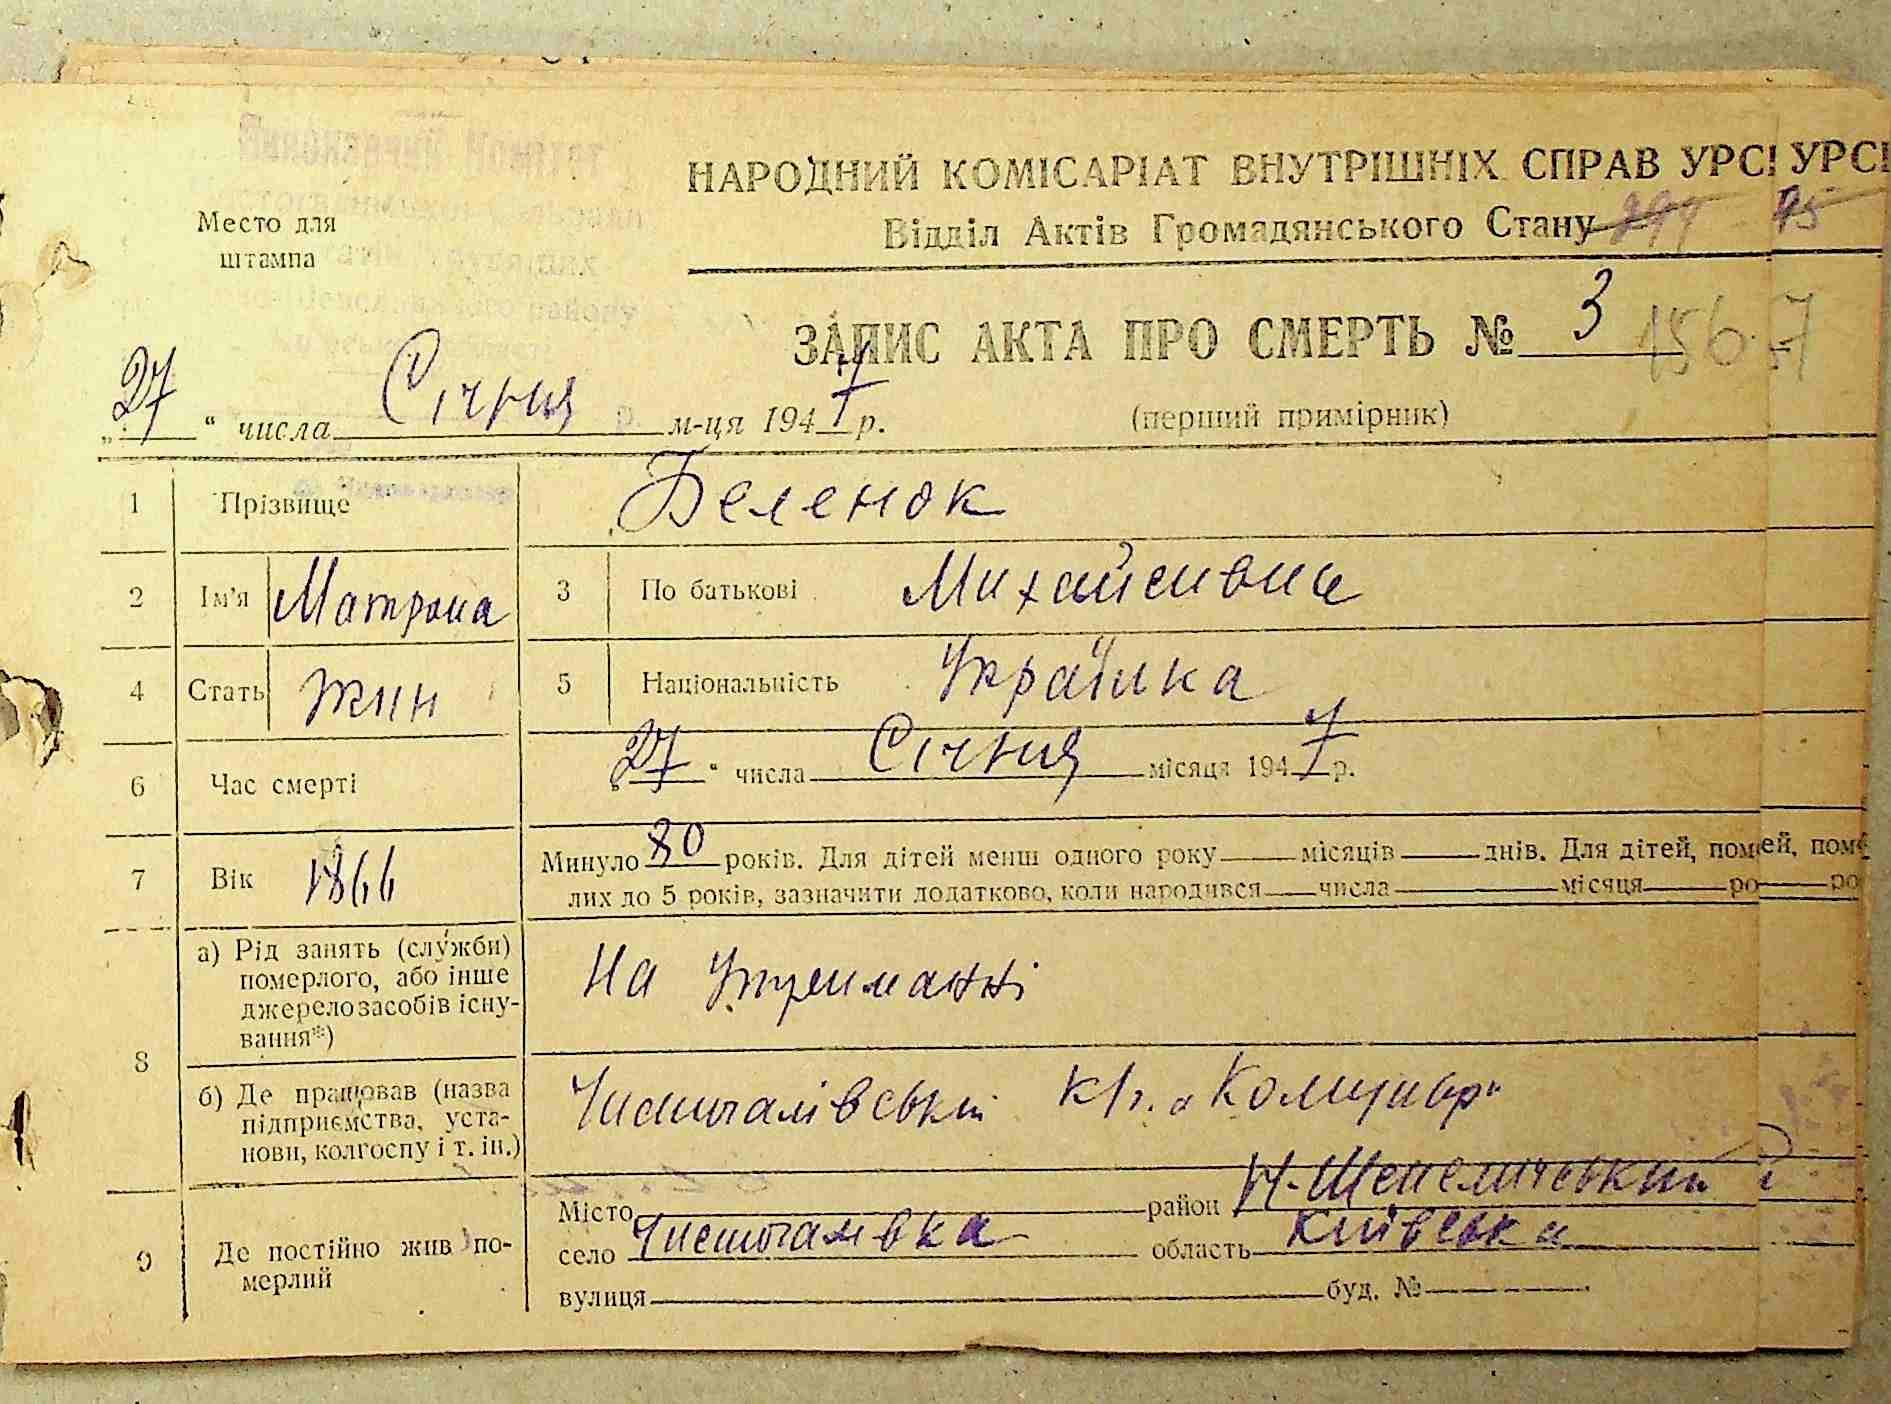 НАРОДНИЙ КОМІСАРІАТ ВНУТРІШНІХ СПРАВ УРСІ УРСІ
Відділ Актів Громадянського Стану
Место для
штампа
ЗАПИС АКТА ПРО СМЕРТЬ № 3 156
„27“ числа Січня м-ця 1947 р.
(перший примірник)
1 Прізвище Беленок
2 Ім'я Матрона 3 По батькові Михайлівна
4 Стать жін 5 Національність Українка
6 Час смерті „27“ числа Січня місяця 1947 р.
7 Вік 1866 Минуло 80 років. Для дітей менш одного року місяців днів. Для дітей, пом ей, поме
лих до 5 років, зазначити додатково, коли народився числа місяця ро ро
8 а) Рід занять (служби)
померлого, або інше
джерело засобів існу-
вання*)
На утриманні
б) Де працював (назва
підприємства, уста-
нови, колгоспу і т. ін.)
Чистогалівський к/г. „Комунар"
9 Де постійно жив по-
мерлий
Місто район Н-Шепелицький
село Чистогалівка область Київська
вулиця буд. №